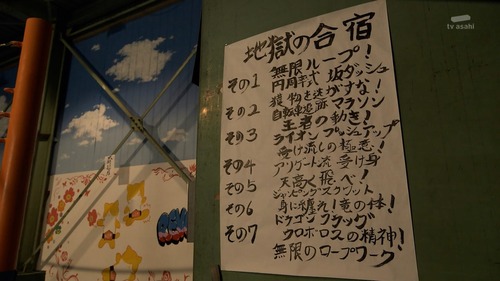 tv asahi
地獄の合宿
その1 無限ループ！
円月千式 坂ダッシュ
その2 獲物を逃がすな！
自転車追跡マラソン
その3 王者の動き！
ライオンプッシュアップ
その4 受け流しの極意！
アリゲート流 受け身
その5 天高く飛べ！
ジャンピングスクワット
その6 身に纏え！竜の体！
ドラゴンフラッグ
その7 ウロボロスの精神！
無限のロープワーク